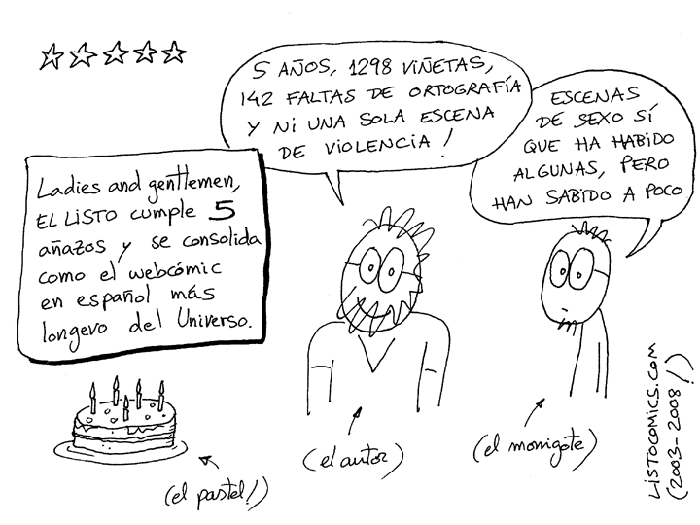 5 AÑOS, 1298 VIÑETAS,
142 FALTAS DE ORTOGRAFÍA
Y NI UNA SOLA ESCENA
DE VIOLENCIA!
ESCENAS
DE SEXO SÍ
QUE HA HABIDO
ALGUNAS, PERO
HAN SABIDO A POCO
Ladies and gentlemen,
EL LISTO cumple 5
añazos y se consolida
como el webcómic
en español más
longevo del Universo.
(el pastel!)
(el autor)
(el monigote)
LISTOCOMICS.COM
(2003-2008!)